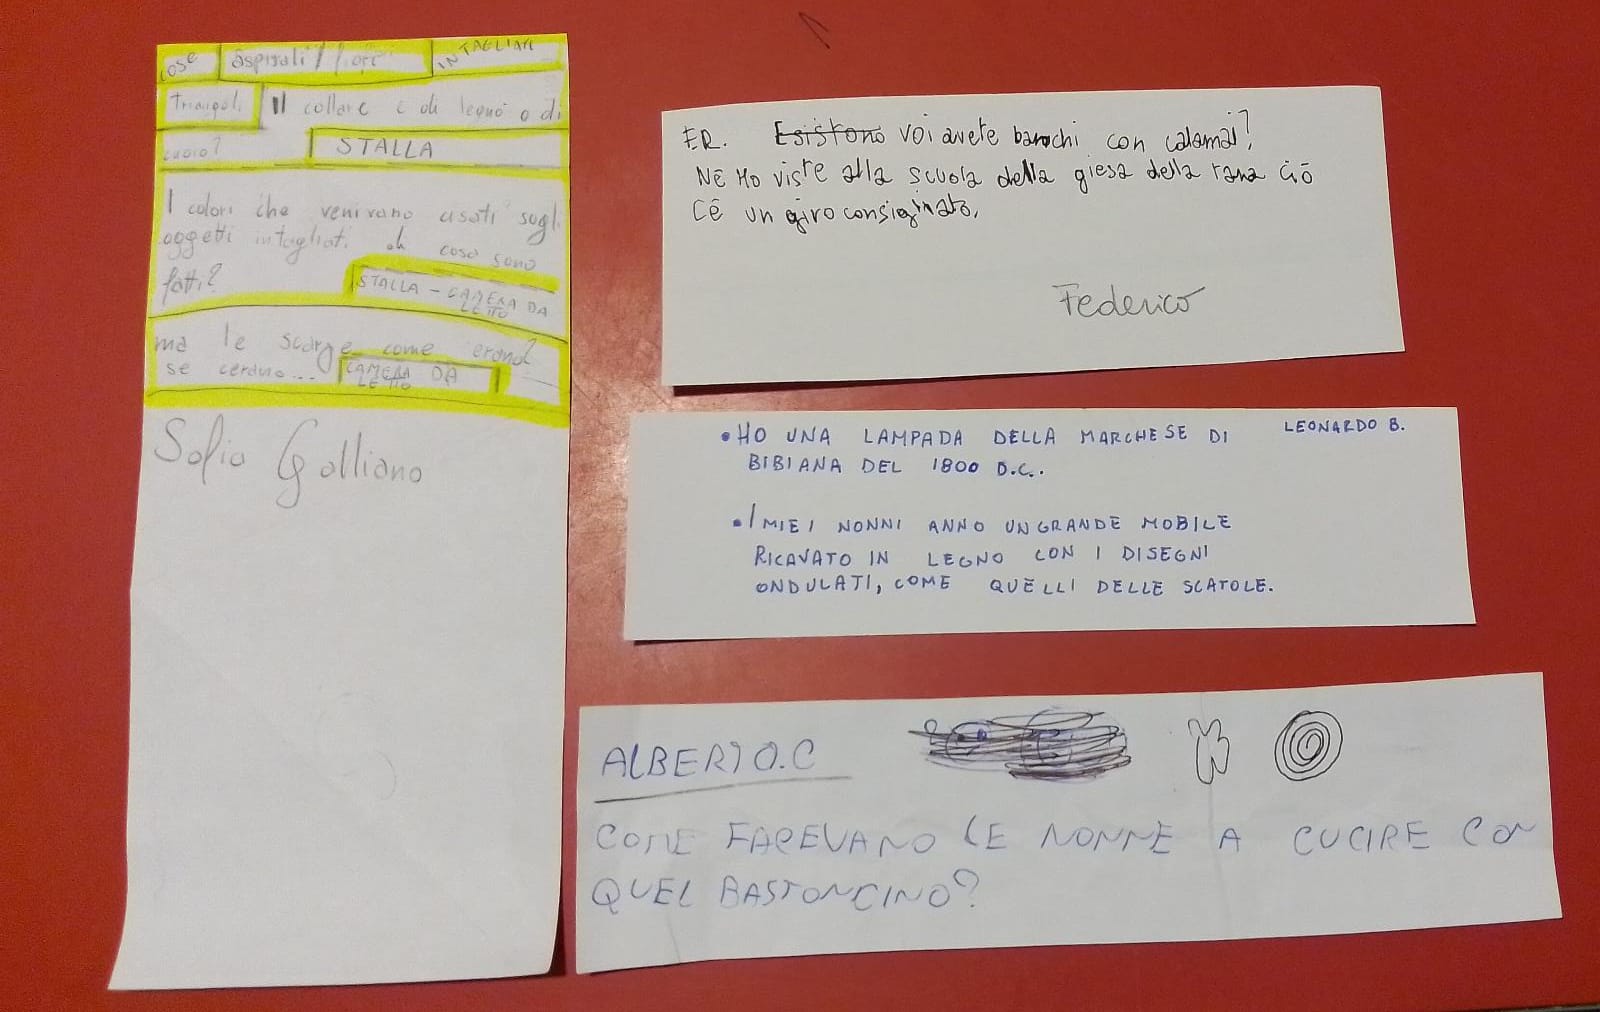 cose aspirali / fiori INTAGLIATI
Triangoli Il collare è di legno o di
cuoio? STALLA
I colori che venivano usati sugli
oggetti intagliati di cosa sono
fatti? STALLA - CAMERA DA
LETTO
ma le scarpe come erano?
se cerano... CAMERA DA
LETTO
Sofia Galliano
F.R. Esistono voi avete banchi con calamai?
Ne ho viste alla scuola della giesa della rana ciò
Cè un giro consiginato.
Federico
• HO UNA LAMPADA DELLA MARCHESE DI
BIBIANA DEL 1800 D.C..
LEONARDO B.
• I MIEI NONNI ANNO UN GRANDE MOBILE
RICAVATO IN LEGNO CON I DISEGNI
ONDULATI, COME QUELLI DELLE SCATOLE.
ALBERTO.C
COME FACEVANO LE NONNE A CUCIRE CON
QUEL BASTONCINO?